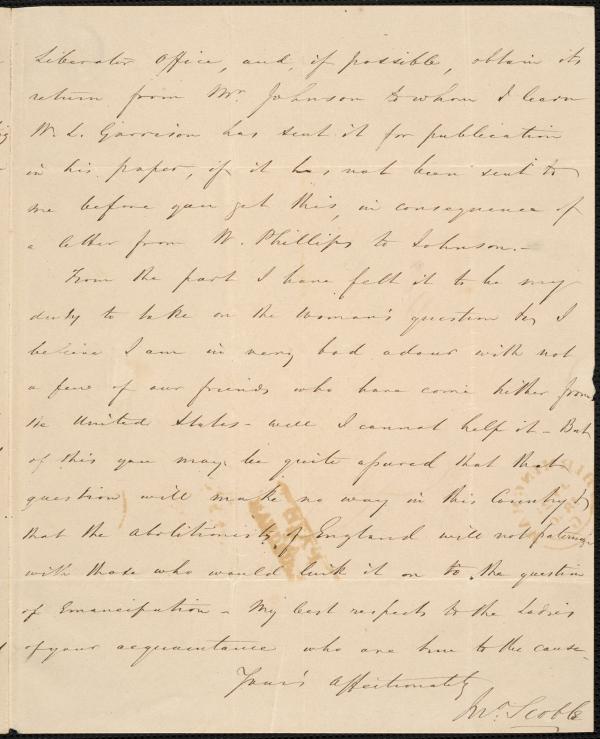 Liberator Office, and, if possible, obtain its
return from Mr. Johnson to whom I learn
W. L. Garrison has sent it for publication
in his paper, if it has not been sent to
me before you get this, in consequence of
a letter from W. Phillips to Johnson.—
From the part I have felt it to be my
duty to take on the Woman's question &c, I
believe I am in very bad odour with not
a few of our friends who have come hither from
the United States — well I cannot help it — But
of this you may be quite assured that that
question will make no way in this Country &
that the abolitionists of England will not fraternize
with those who would link it on to the question
of Emancipation — My best respects to the Ladies
of your acquaintance who are true to the cause.
Your's affectionately
Jno. Scoble